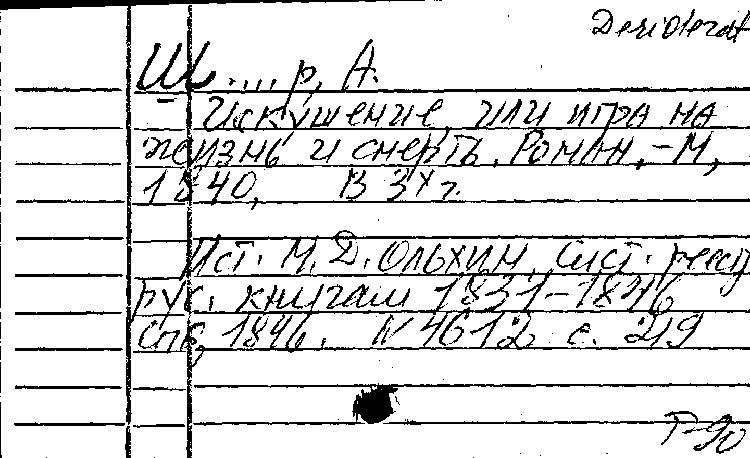 Desiderat
Ш....р, А.
Искушение, или игра на
жизнь и смерть. Роман. – М.,
1840, В 3х г.
Ист. М. Д. Ольхин. Сист. реестр
рус. книгам 1831–1846
Спб, 1846. N 4612 с. 219
Т-90